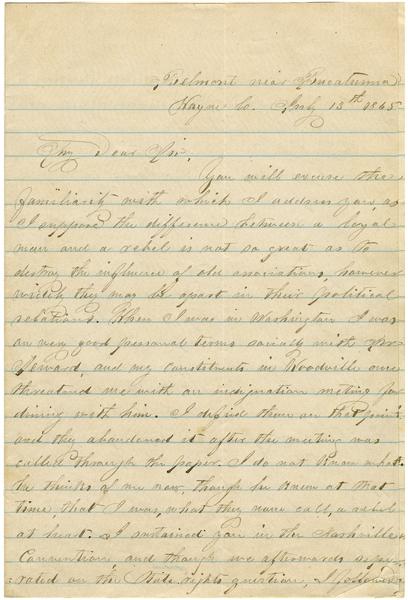 Belmont near Bucatunna
Wayne Co. July 13th 1865
My Dear Sir.
You will excuse the
familiarity with which I address you, as
I suppose the difference between a loyal
man and a rebel is not so great as to
destroy the influence of old associations, however
widely they may be apart in their political
relations. When I was in Washington I was
on very good personal terms socially with Mr
Seward, and my constituents in Woodville once
threatened me with an indignation meeting for
dining with him. I defied them on that point,
and they abandoned it after the meeting was
called through the paper. I do not know what
he thinks of me now, though he knew at that
time, that I was, what they now call, a rebel
at heart. I sustained you in the Nashville
Convention, and though we afterwards sepa-
rated on the State rights question, I followed